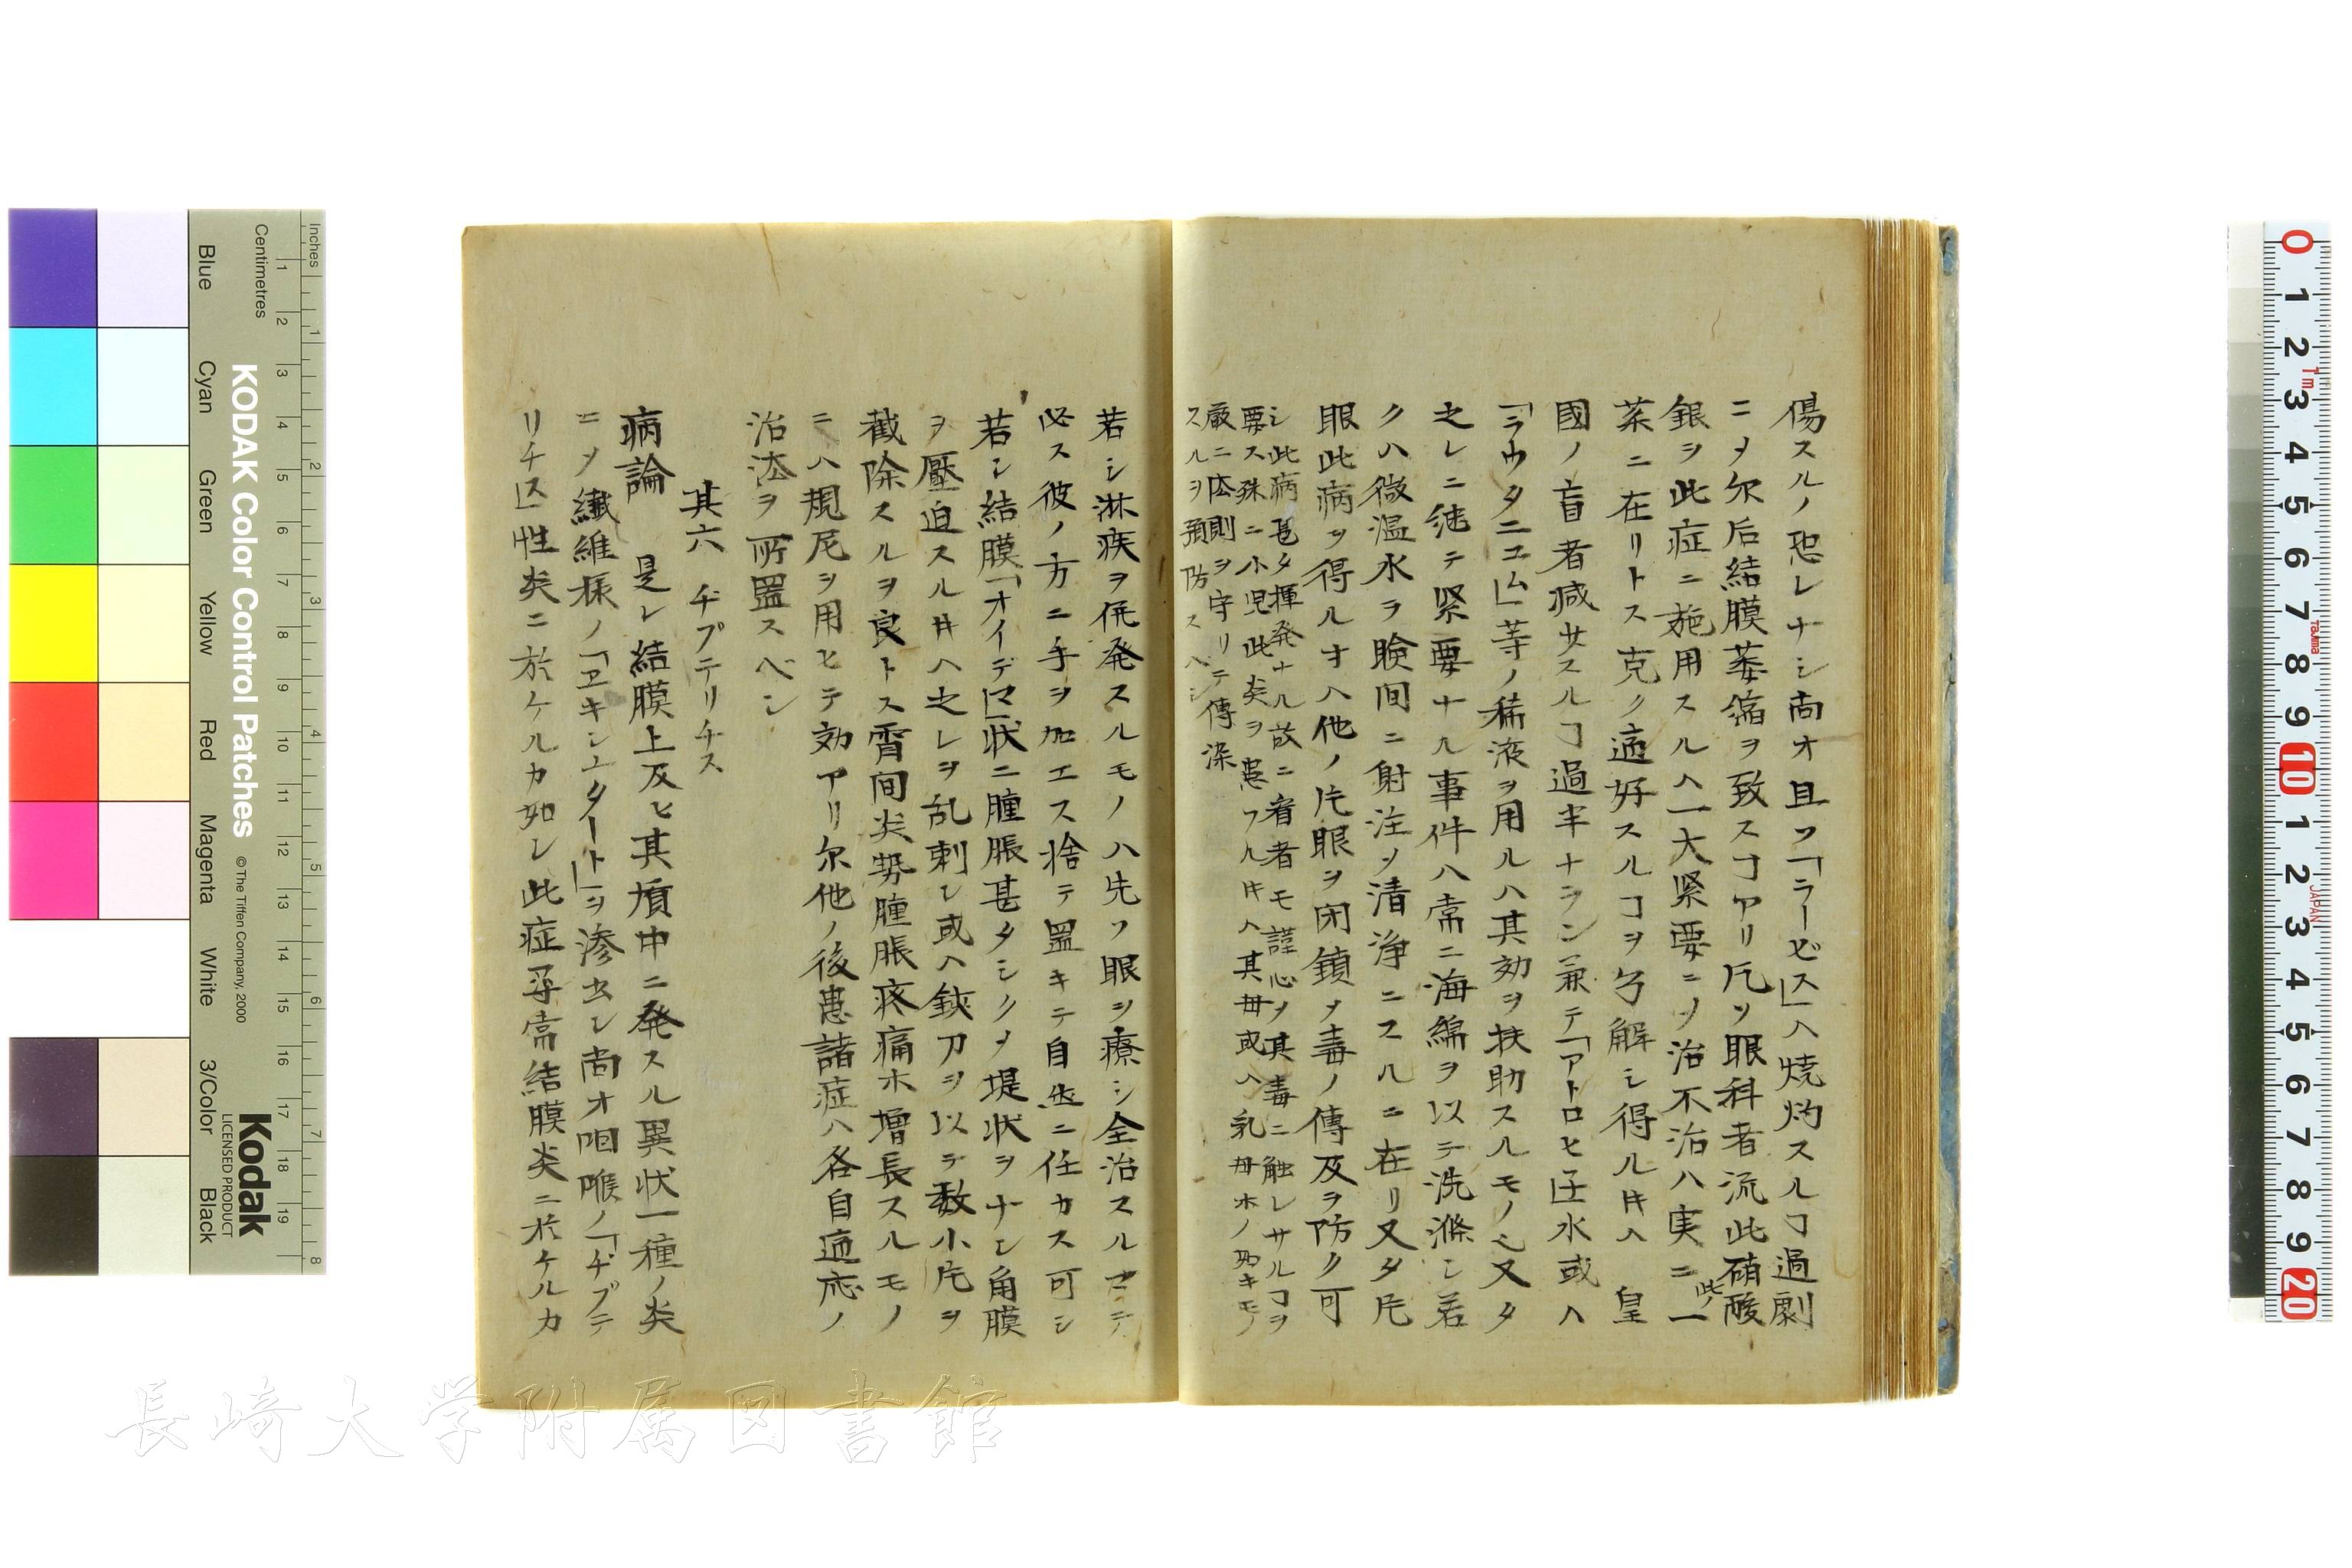 傷スルノ恐レナシ尚オ且ツ「ラーピス」ハ焼灼スルヿ過劇
ニメ尓后結膜萎縮ヲ致スヿアリ凡ソ眼科者流此硝酸
銀ヲ此症ニ施用スルハ一大緊要ニメ治不治ハ実ニ此ノ一
茶ニ在リトス克ク適好スルヿヲ弓解シ得ルキハ　皇
國ノ盲者减サスルヿ過半ナラン兼テ「アトロヒ子」水或ハ
「ラウタニユム」等ノ稀液ヲ用ルハ其効ヲ扶助スルモノ也又タ
之レニ継テ緊要ナル事件ハ常ニ海綿ヲ以テ洗滌シ若
クハ微温水ヲ瞼间ニ射注メ清浄ニスルニ在リ又タ片
眼此病ヲ得ルオハ他ノ片眼ヲ闭鎖メ毒ノ傳及ヲ防ク可
シ此病甚タ揮発ナル故ニ看者モ謹心メ其毒ニ触レサルヿヲ
要ス殊ニ小児此炎ヲ患フルキハ其母或ハ乳母ホノ如キモノ
厳ニ法則ヲ守リテ傳染
スルヲ預防スヘシ
若シ淋疾ヲ併発スルモノハ先ツ眼ヲ療シ全治スルマテ
必ス彼ノ方ニ手ヲ加エス捨テ置キテ自然ニ任カス可シ
若シ結膜「オイデマ」状ニ腫脹甚タシクメ堤状ヲナシ角膜
ヲ壓迫スルキハ之レヲ乱刺シ或ハ鋏刀ヲ以テ数小片ヲ
截除スルヲ良トス霄间炎勢腫脹疼痛ホ増長スルモノ
ニハ規尼ヲ用ヒテ効アリ尓他ノ後患諸症ハ各自適応ノ
治法ヲ所置スベシ
其六　ヂプテリチス
病論　是レ結膜上及ヒ其質中ニ発スル異状一種ノ炎
ニメ纎維様ノ「エキシュタート」ヲ滲出シ尚オ咽喉ノ「ヂプテ
リチス」性炎ニ於ケルカ如シ此症尋常結膜炎ニ於ケルカ
Inches
Centimetres
KODAK Color Control Patches
© The Tiffen Company, 2000
Kodak
LICENSED PRODUCT
Blue
Cyan
Green
Yellow
Red
Magenta
White
3/Color
Black
長崎大学附属図書館